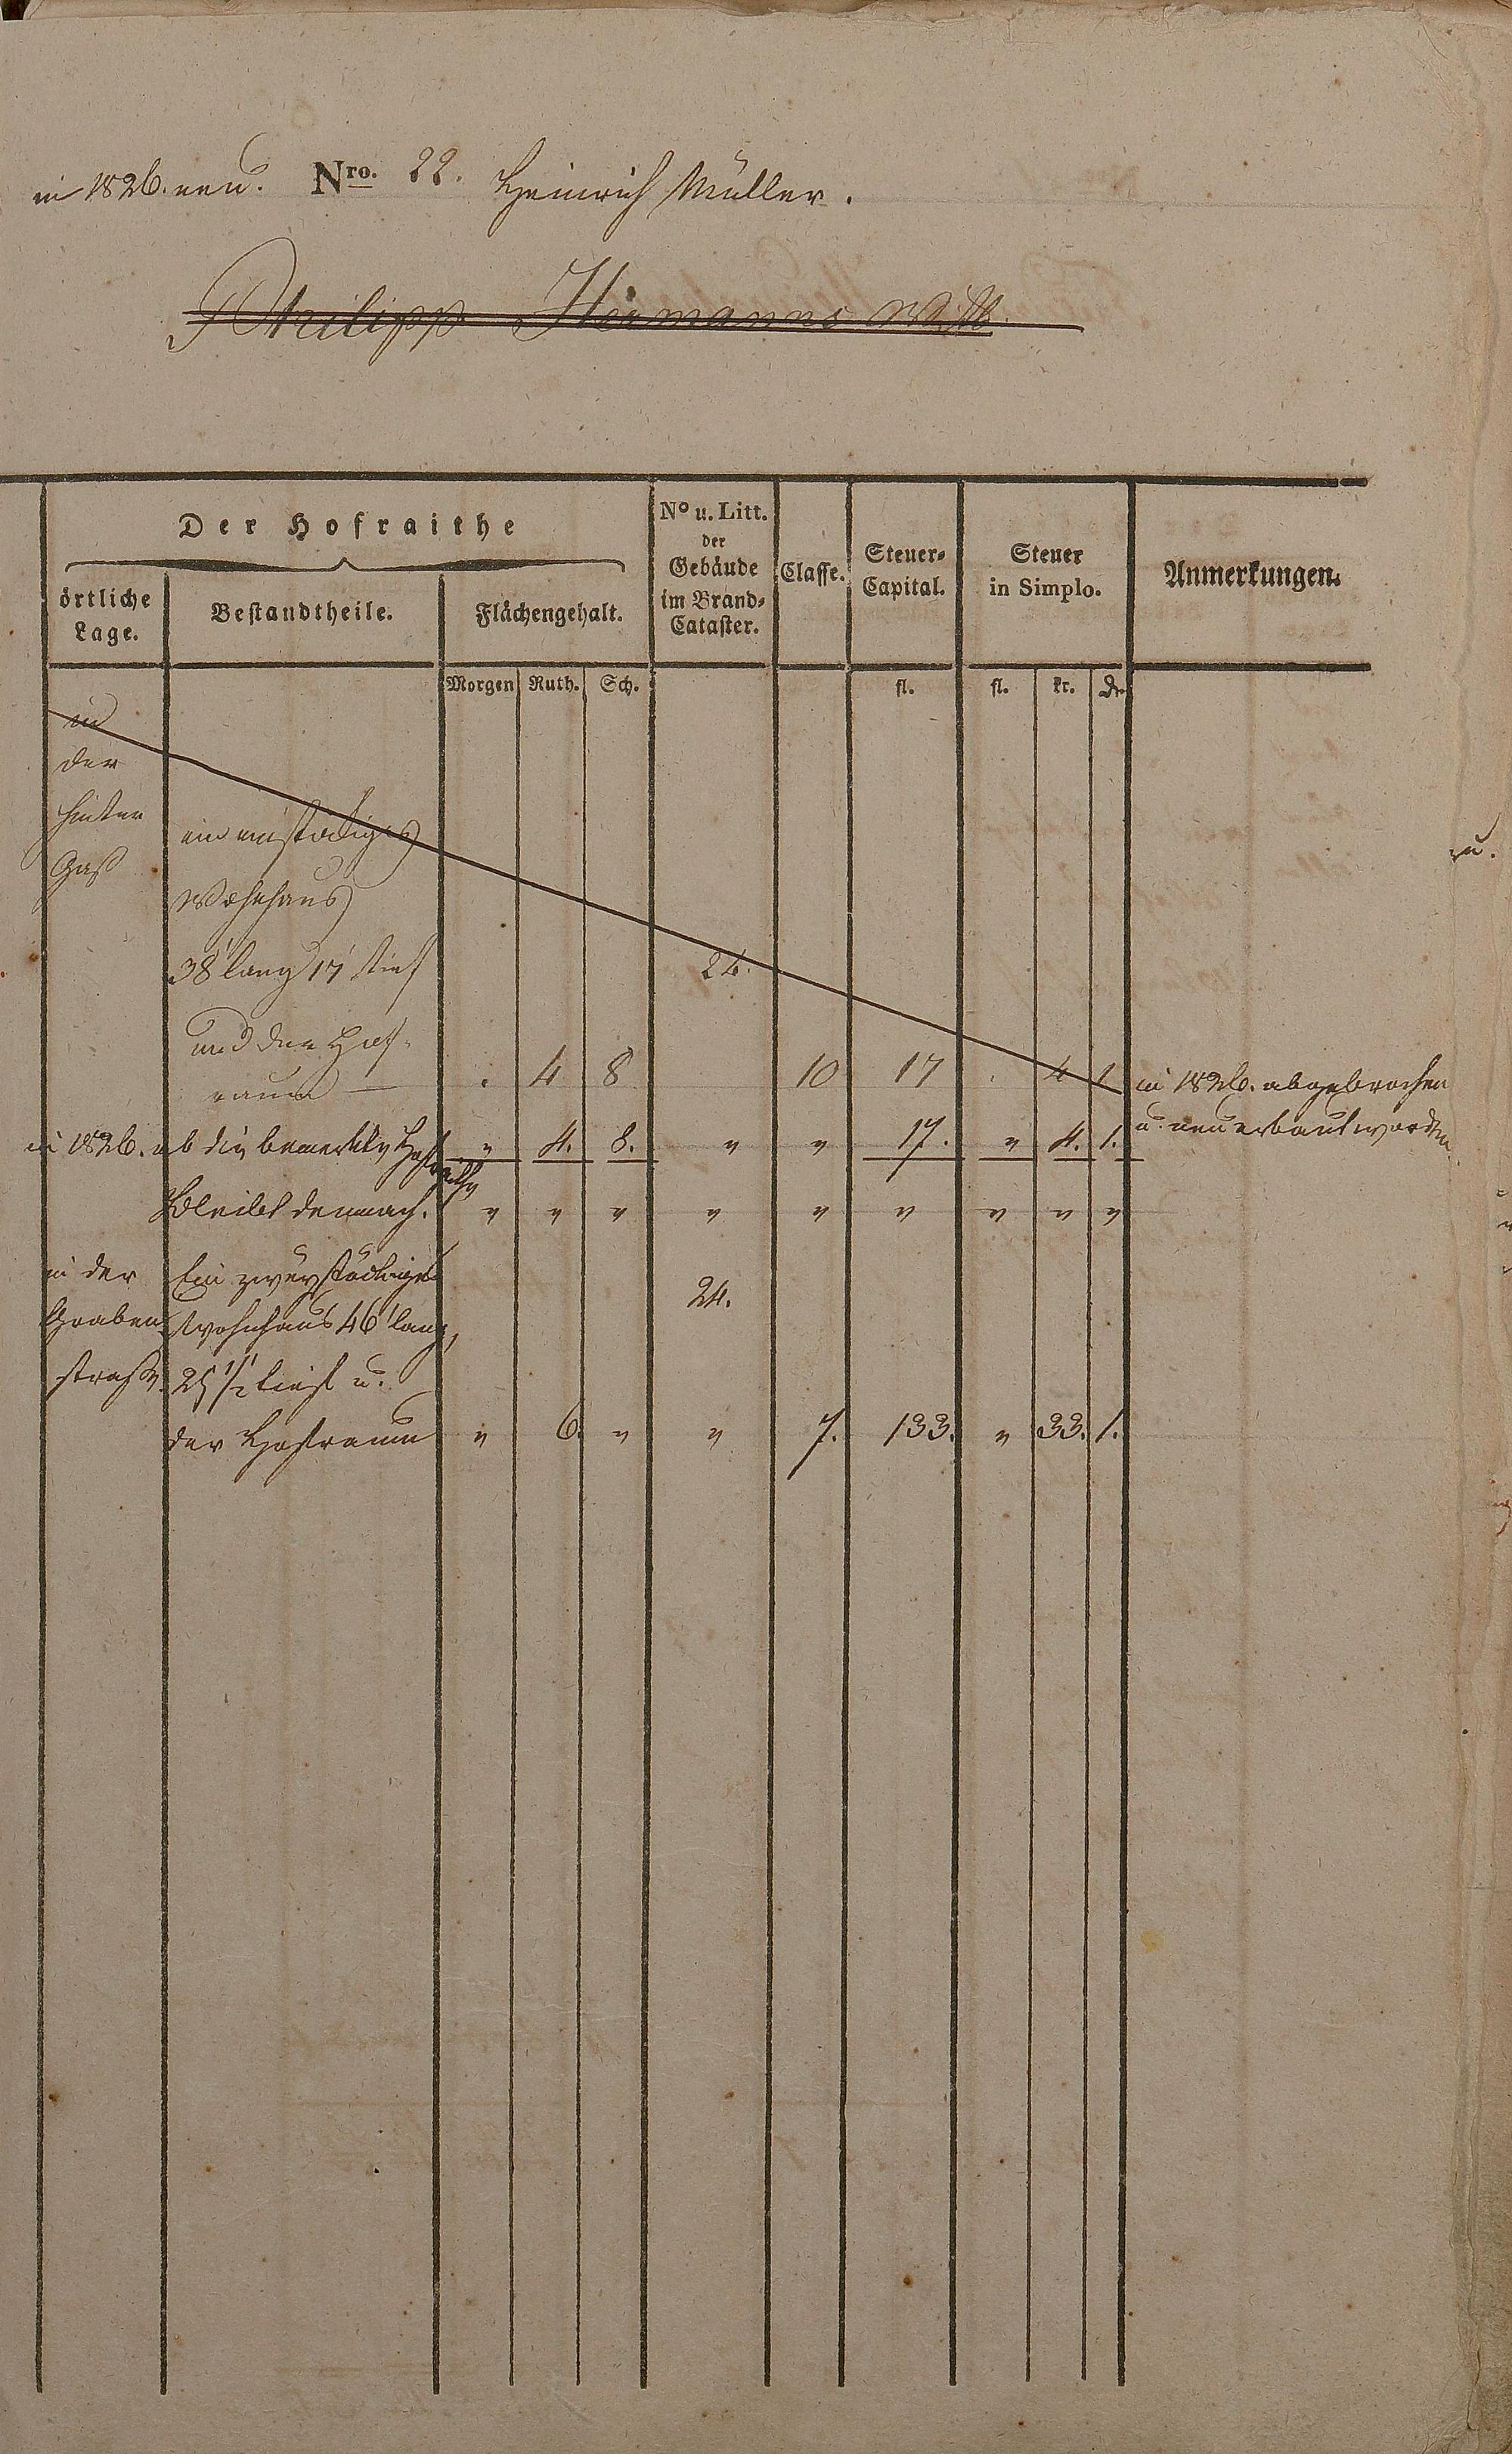 in 1826. neu. Nro. 22. Heinrich Müller.
Philipp Hermanns Witb
Der Hofraithe
örtliche Lage.
Bestandtheile.
Flächengehalt.
No u. Litt. der Gebäude im Brand-Cataster.
Classe.
Steuer-Capital.
Steuer in Simplo.
Anmerkungen.
Morgen Ruth. Sch. fl. fl. kr. dr.
in
der
hinter
Gaß
ein einstökiges
Wohnhaus
38' lang 17' tief 24.
und der Hof-
raum — . 4 8 10 17 . 4 1 in 1826. abgebrochen
u. neu erbaut worden.
in 1826. ab die bemerkte Hofraithe " 4. 8. " " 17. " 4. 1.
Bleibt demnach. " " " " " " " " "
in der Ein zweystöckiges
Graben Wohnhaus 46' lang, 24.
straße. 25 1/2' tief u.
der Hofraum " 6. " " 7. 133. " 33. 1.
u.